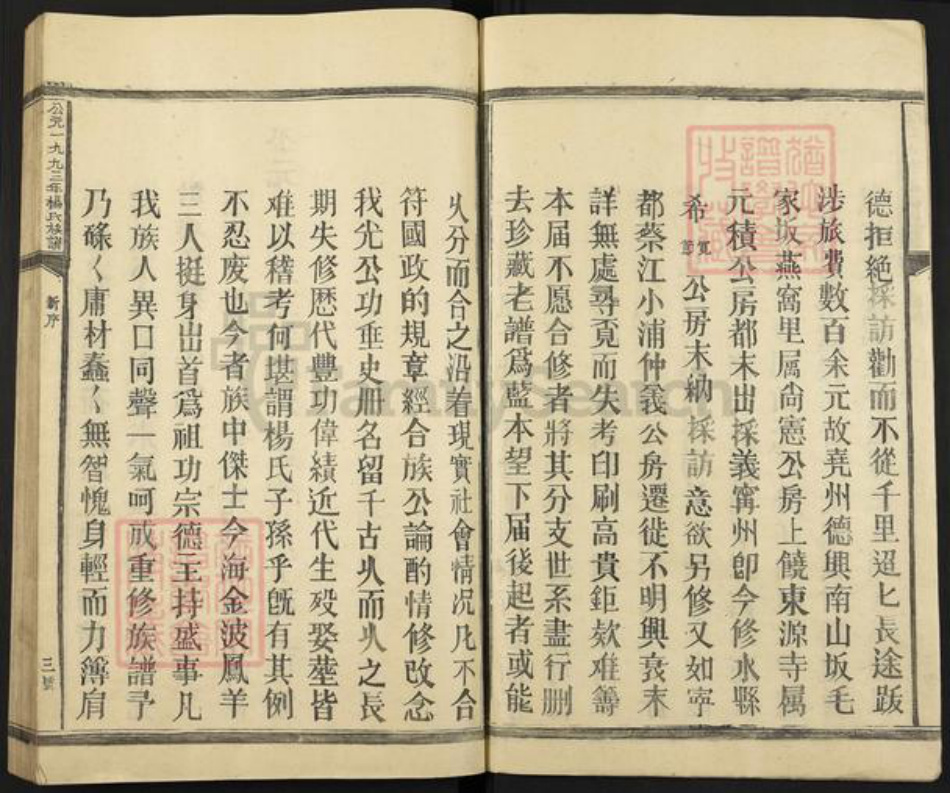 德拒絶採訪勸而不從千里迢匕長途跋
涉旅費數百余元故堯州德興南山坂毛
家坂燕窩里属尚憲公房上饒東源寺属
元積公房都未出採義寧州卽今修水縣
希寬節公房未納採訪意欲另修又如寧
都蔡江小浦仲義公房遷徙不明興衰未
詳無處尋覓而失考印刷高貴鉅欵难籌
本届不愿合修者將其分支世系盡行删
去珍藏老譜爲藍本望下届後起者或能
乆分而合之沿着現實社會情况凡不合
符國政的規章經合族公論酌情修改念
我光公功垂史册名留千古乆而乆之長
期失修歷代豐功偉績近代生殁娶塟皆
难以稽考何堪謂楊氏子孫乎旣有其例
不忍废也今者族中傑士今海金波鳳羊
三人挺身出首爲祖功宗德主持盛事凡
我族人異口同聲一氣呵成重修族譜予
乃碌〱庸材蠢〱無智愧身輕而力簿肩
公元一九九二年楊氏族譜
新序
三號
FamilySearch